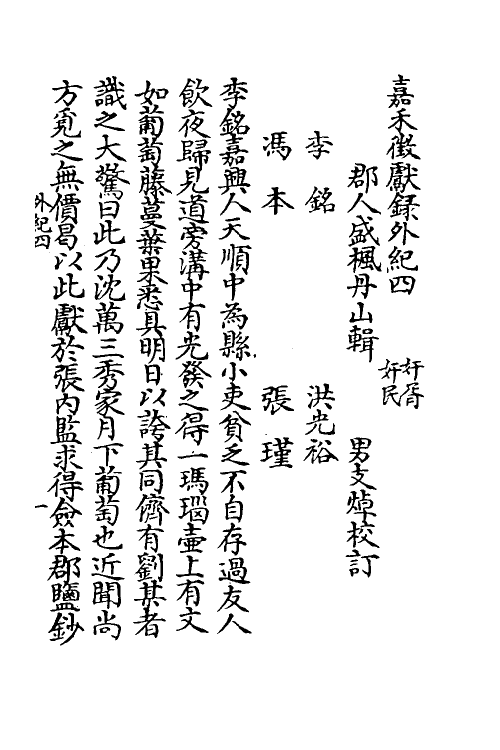 嘉禾徵獻錄外紀四
奸胥
奸民
郡人盛楓丹山輯
男支焯校訂
李銘
洪光裕
馮本
張瑾
李銘嘉興人天順中為縣小吏貧乏不自存過友人
飲夜歸見道旁溝中有光發之得一瑪瑙壷上有文
如葡萄藤蔓葉果悉具明日以誇其同儕有劉某者
識之大驚曰此乃沈萬三秀家月下葡萄也近聞尚
方覓之無價曷以此獻於張內監求得僉本郡鹽鈔
外紀四
一